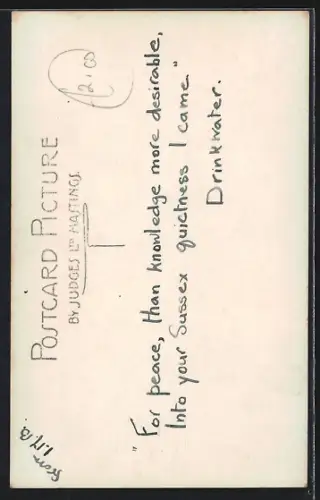 2.00
POSTCARD PICTURE
BY JUDGES LTD HASTINGS
"For peace, than knowledge more desirable,
Into your Sussex quietness I came."
Drinkwater.
From